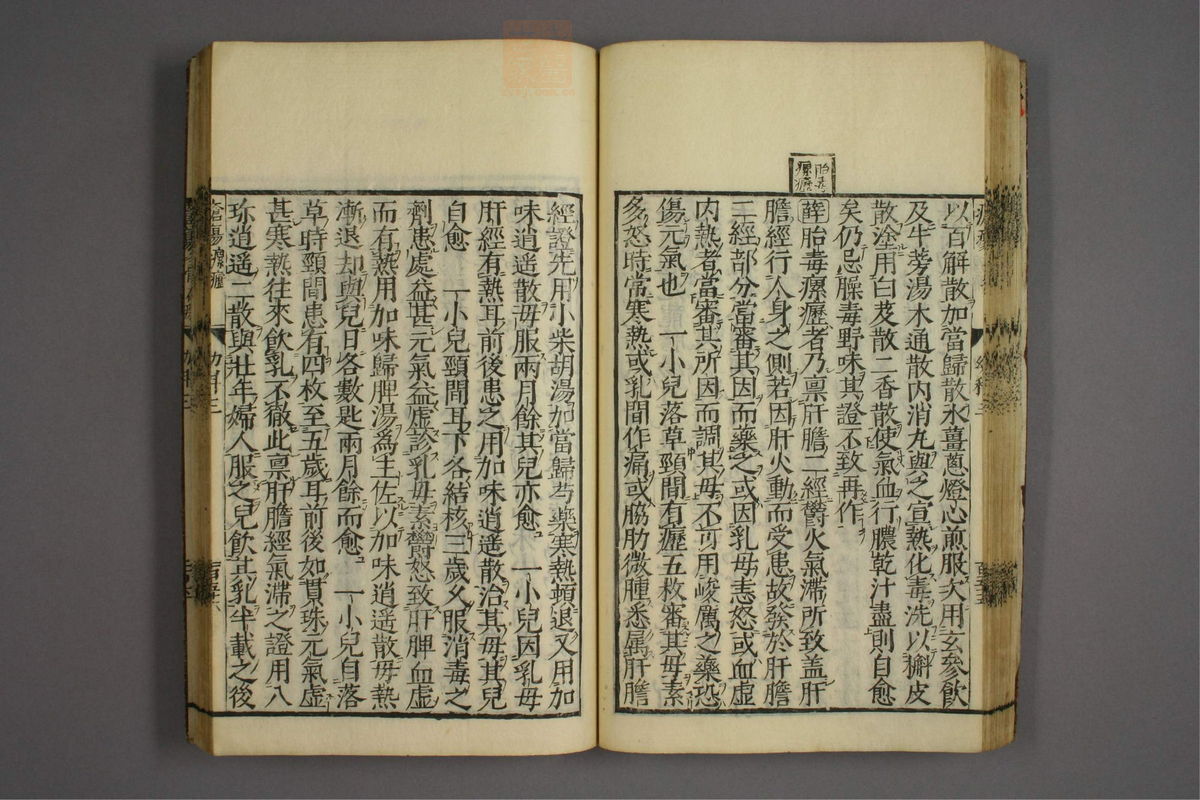 胎毒
瘰癧
以百解散加當歸散水薑蔥燈心煎服次用玄參飲
及牛蒡湯木通散内消丸與之宣熱化毒洗以槲皮
散塗用白芨散二香散使氣血行膿乾汁盡則自愈
矣仍忌臊毒野味其證不致再作
薛胎毒瘰癧者乃禀肝膽二經鬱火氣滯所致盖肝
膽經行人身之側若因肝火動而受患故發於肝膽
二經部分當審其因而藥之或因乳母恚怒或血虚
内熱者當審其所因而調其母不可用峻厲之藥恐
傷元氣也 一小兒落草頸間有癧五枚審其母素
多怒時常寒熱或乳間作痛或脇肋微腫悉属肝膽
經證先用小柴胡湯加當歸芍藥寒熱頓退又用加
味逍遥散母服兩月餘其兒亦愈 一小兒因乳母
肝經有熱耳前後患之用加味逍遥散治其母其兒
自愈 一小兒頸間耳下各結核三歲久服消毒之
劑患處益甚元氣益虚診乳母素鬱怒致肝脾血虚
而有熱用加味歸脾湯為主佐以加味逍遥散母熱
漸退却與兒日各數匙兩月餘而愈 一小兒自落
草時頸間患有四枚至五歲耳前後如貫珠元氣虚
甚寒熱往來飲乳不徹此禀肝膽經氣滯之證用八
珎逍遥二散與壯年婦人服之兒飲其乳半載之後
瘡瘍瘰癧
幼科三